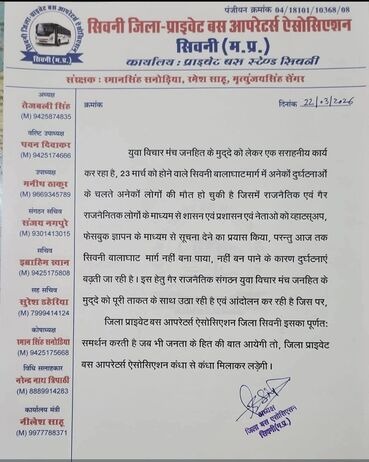 पंजीयन क्रमांक 04/18101/10368/08
सिवनी जिला-प्राइवेट बस आपरेटर्स ऐसोसिएशन
सिवनी (म.प्र.)
कार्यालय : प्राइवेट बस स्टेण्ड सिवनी
संरक्षक : स्मानसिंह सनोडिया, रमेश साहू, मृत्युजयसिंह सेंगर
क्रमांक
दिनांक 22/03/2026
अध्यक्ष
तेजबली सिंह
(M) 9425874835
वरिष्ट उपाध्यक्ष
पवन दिवाकर
(M) 9425174666
उपाध्यक्ष
मनीष ठाकुर
(M) 9669345789
संगठन सचिव
संजय नमपुरे
(M) 9301413015
सचिव
इब्राहिम खान
(M) 9425175808
सह सचिव
सुरेश डहेरिया
(M) 7999414124
कोषाध्यक्ष
स्मान सिंह सनोडिया
(M) 9425175668
विधि सलाहकार
नरेन्द्र नाथ त्रिपाठी
(M) 8889914283
कार्यालय मंत्री
नीलेश साहू
(M) 9977788371
युवा विचार मंच जनहित के मुद्दे को लेकर एक सराहनीय कार्य
कर रहा है, 23 मार्च को होने वाले सिवनी बालाघाट मार्ग में अनेकों दुर्घटनाओं
के चलते अनेकों लोगों की मौत हो चुकी है जिसमें राजनैतिक एवं गैर
राजनैतिक लोगों के माध्यम से शासन एवं प्रशासन एवं नेताओ को व्हाटस्अप,
फेसयुक ज्ञापन के माध्यम से सूचना देने का प्रयास किया, परन्तु आज तक
सिवनी बालाघाट मार्ग नहीं बना पाया, नहीं बन पाने के कारण दुर्घटनाएं
बढ़ती जा रही है। इस हेतु गैर राजनैतिक संगठन युवा विचार मंच जनहित के
मुद्दे को पूरी ताकत के साथ उठा रही है एवं आंदोलन कर रही है जिस पर,
जिला प्राइवेट बस आपरेटर्स ऐसोसिएशन जिला सिवनी इसका पूर्णतः
समर्थन करती है जब भी जनता के हित की बात आयेगी तो, जिला प्राइवेट
बस आपरेटर्स ऐसोसिएशन कंधा से कंधा मिलाकर लड़ेगी।
अध्यक्ष
जिला बस आपरेटर्स ऐसोसिएसन
सिवनी (म.प्र.)